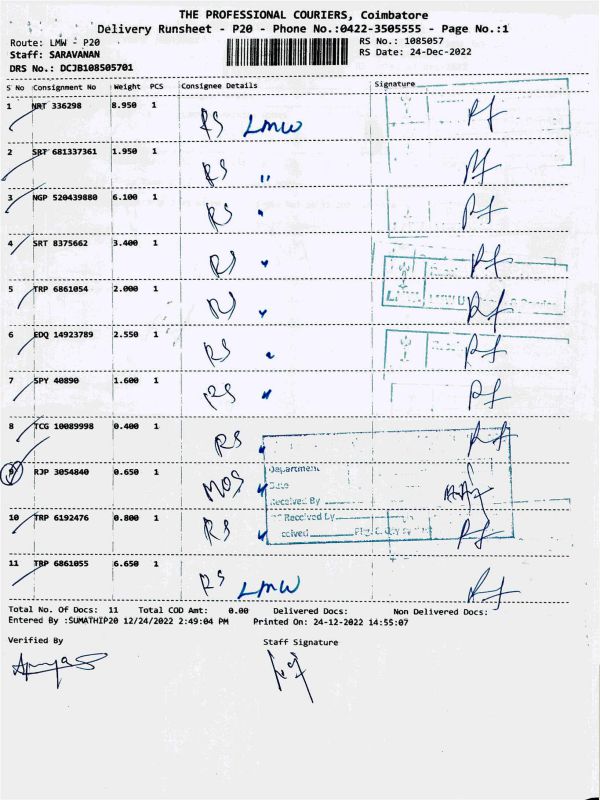 THE PROFESSIONAL COURIERS, Coimbatore
Delivery Runsheet - P20 - Phone No.:0422-3505555 - Page No.:1
Route: LMW - P20
RS No.: 1085057
Staff: SARAVANAN
RS Date: 24-Dec-2022
DRS No.: DCJB108505701
S No Consignment No Weight PCS Consignee Details Signature
1 NRT 336298 8.950 1
RS LMW
2 SRT 681337361 1.950 1
RS "
3 NGP 520439880 6.100 1
RS "
4 SRT 8375662 3.400 1
RS "
5 TRP 6861054 2.000 1
RS "
6 EDQ 14923789 2.550 1
RS "
7 SPY 40890 1.600 1
RS "
8 TCG 10089998 0.400 1
RS "
Department
9 RJP 3054840 0.650 1
Date
MOS "
Received By
10 TRP 6192476 0.800 1
Received by
RS "
11 TRP 6861055 6.650 1
RS LMW
Total No. Of Docs: 11 Total COD Amt: 0.00 Delivered Docs: Non Delivered Docs:
Entered By :SUMATHIP20 12/24/2022 2:49:04 PM Printed On: 24-12-2022 14:55:07
Verified By Staff Signature